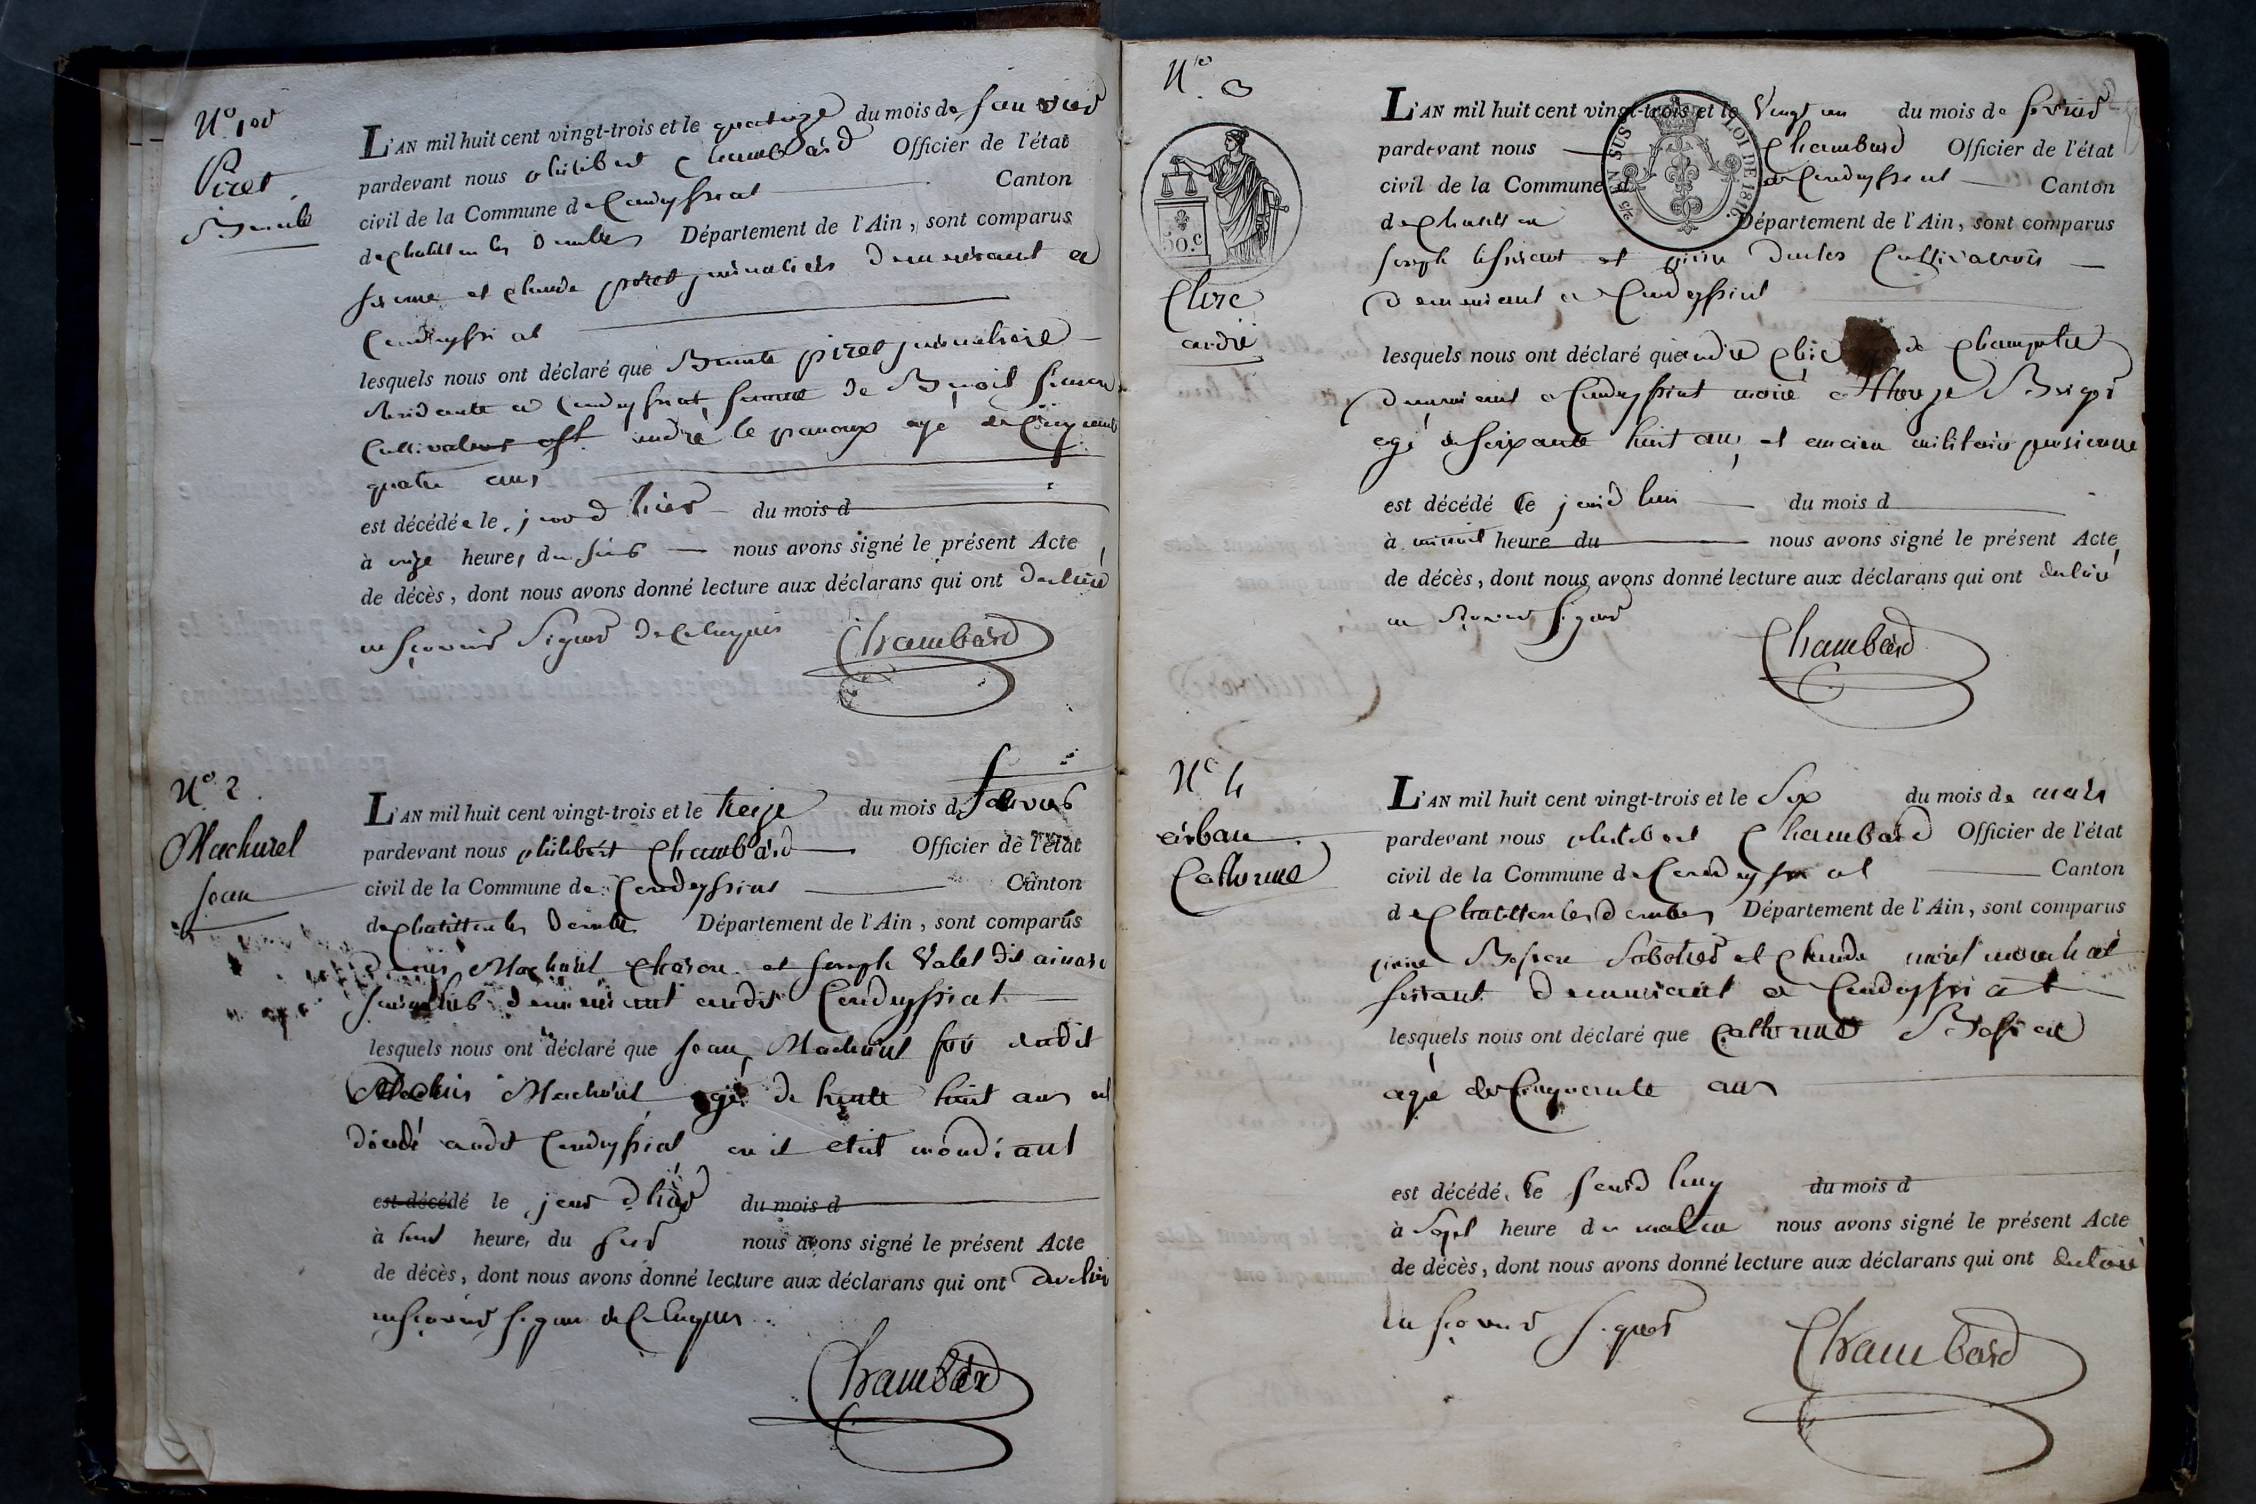 N.º 1er
Piret
Benoite
L'AN mil huit cent vingt-trois et le quatorze du mois de Janvier
pardevant nous philibert Chambard Officier de l'état
civil de la Commune de Condeyssiat Canton
de chatillon les Dombes Département de l'Ain, sont comparus
et claude piret journaliers demeurant a
Condeyssiat
lesquels nous ont déclaré que Benoite piret journaliere
Residante a Condeyssiat femme de Benoit
Cultivateur agé de Cinquante
quatre ans
est décédée le jour d hier du mois d
à onze heures du soir nous avons signé le présent Acte
de décès, dont nous avons donné lecture aux déclarans qui ont declaré
ne sçavoir signer de Ce Enquis
Chambard
N.º 2.
Machurel
Jean
L'AN mil huit cent vingt-trois et le treize du mois de fevrier
pardevant nous philibert Chambard Officier de l'état
civil de la Commune de Condeyssiat Canton
de chatillon les Dombes Département de l'Ain, sont comparus
Machurel et Joseph Valet dit
demeurant audit Condeyssiat
lesquels nous ont déclaré que Jean Machurel dudit
Machurel agé de trente huit ans est
décédé audit Condeyssiat ou il etait mendiant
est décédé le jour d hier du mois d
à huit heures du soir nous avons signé le présent Acte
de décès, dont nous avons donné lecture aux déclarans qui ont declaré
ne sçavoir signer de Ce Enquis
Chambard
N.º 3
50.C
EN SUS LOI DE 1816.
Clere
andré
L'AN mil huit cent vingt-trois et le Vingt un du mois de fevrier
pardevant nous Chambard Officier de l'état
civil de la Commune de Condeyssiat Canton
de Chatillon Département de l'Ain, sont comparus
Joseph et pierre Cultivateurs
demeurant a Condeyssiat
lesquels nous ont déclaré que andré Clere garde Champetre
demeurant a Condeyssiat marié a
agé de soixante huit ans, et ancien militaire
est décédé le jourd hui du mois d
à minuit heure du nous avons signé le présent Acte
de décès, dont nous avons donné lecture aux déclarans qui ont declaré
ne sçavoir signer
Chambard
N.º 4
Catherine
L'AN mil huit cent vingt-trois et le Six du mois de mars
pardevant nous philibert Chambard Officier de l'état
civil de la Commune de Condeyssiat Canton
de chatillon les Dombes Département de l'Ain, sont comparus
pierre Sabotier et claude
demeurant a Condeyssiat
lesquels nous ont déclaré que Catherine
agé de Cinquante ans
est décédé le jourd huy du mois d
à Sept heure du matin nous avons signé le présent Acte
de décès, dont nous avons donné lecture aux déclarans qui ont declaré
ne sçavoir signer
Chambard